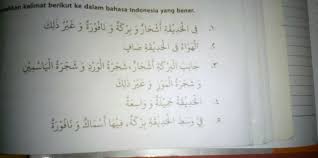 ...mahkan kalimat berikut ke dalam bahasa Indonesia yang benar.
١. فِي الْحَدِيْقَةِ أَشْجَارٌ وَ بِرْكَةٌ وَ نَافُوْرَةٌ وَ غَيْرُ ذٰلِكَ
٢. الْهَوَاءُ فِي الْحَدِيْقَةِ صَافٍ
٣. جَانِبَ الْبِرْكَةِ أَشْجَارٌ، شَجَرَةُ الْوَرْدِ وَ شَجَرَةُ الْيَاسْمِيْنِ
وَ شَجَرَةُ الْمَوْزِ وَ غَيْرُ ذٰلِكَ
٤. الْحَدِيْقَةُ جَمِيْلَةٌ وَ وَاسِعَةٌ
٥. فِيْ وَسَطِ الْحَدِيْقَةِ بِرْكَةٌ، فِيْهَا أَسْمَاكٌ وَ نَافُوْرَةٌ